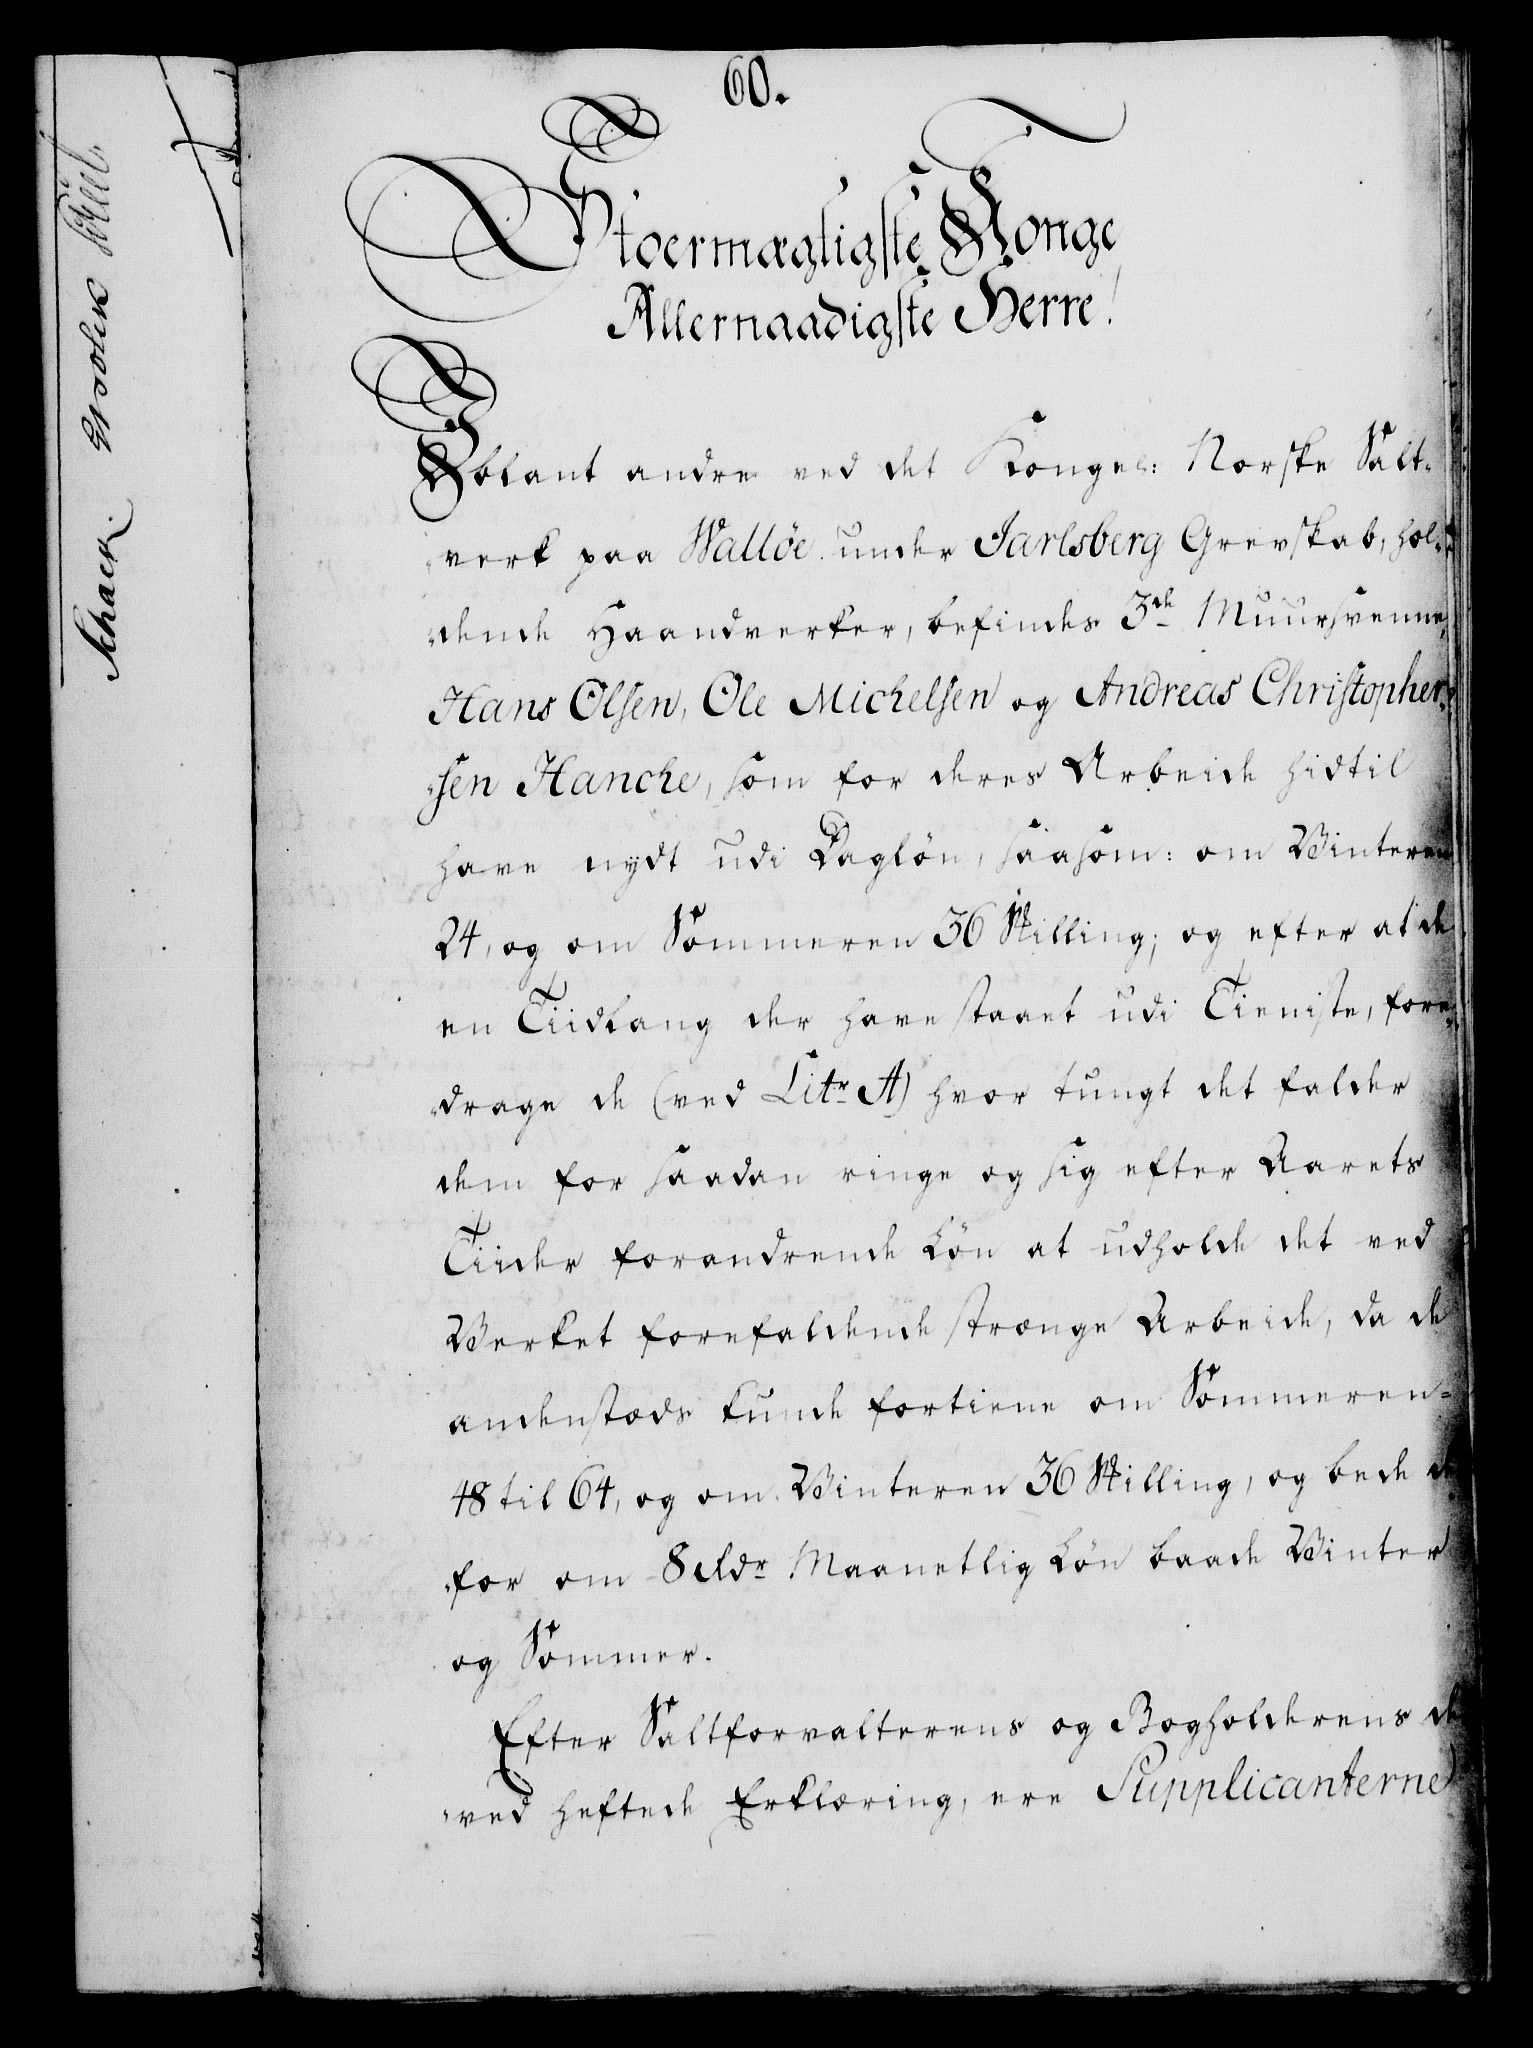 60.
Stoermægtigste Konge
Allernaadigste Herre!
Iblant andre ved det Kongel: Norske Salt-
verk paa Walløe under Jarlsberg Grevskab, hol-
dende Haandverker, befindes 3de Muursvenne,
Hans Olsen, Ole Michelsen og Andreas Christopher-
sen Hanche, som for deres Arbeide hidtil
have nydt udi Dagløn, saasom: om Vinteren
24, og om Sommeren 36 Skilling; og efter at de
en Tiidlang der have staaet udi Tieniste, fore-
drage de (ved Litr A) hvor tungt det falder
dem for saadan ringe og sig efter Aarets
Tiider forandrende Løn at udholde det ved
Verket forefaldende strænge Arbeide, da de
andenstæds kunde fortiene om Sommeren
48 til 64, og om Vinteren 36 Skilling, og bede der-
for om 8 Rdr Maanetlig Løn baade Vinter
og Sommer.
Efter Saltforvalterens og Bogholderens der-
ved heftede Erklæring, ere Supplicanterne
Schack